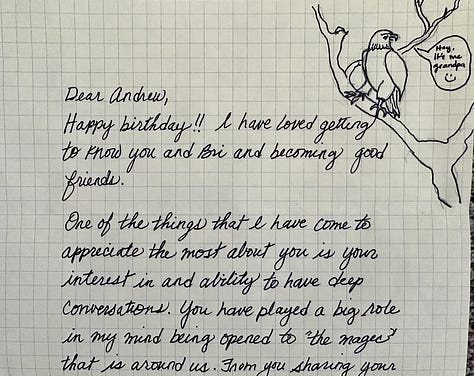 Hey,
it's me
grandpa
Dear Andrew,
Happy birthday!! I have loved getting
to know you and Bri and becoming good
friends.
One of the things that I have come to
appreciate the most about you is your
interest in and ability to have deep
conversations. You have played a big role
in my mind being opened to "the magec"
that is around us. From you sharing your